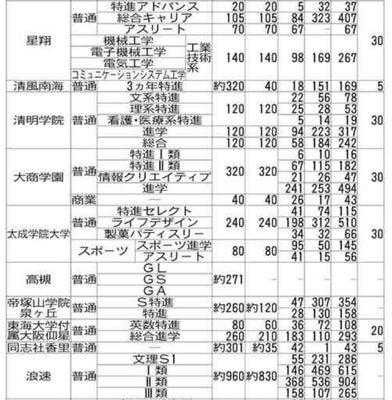 星翔 普通 特進アドバンス 20 20 5 32 37 30
総合キャリア 105 105 84 323 407
アスリート 70 70 67 ― 67
機械工学 工業技術系 140 140 98 169 267
電子機械工学
電気工学
コミュニケーションシステム工学
清風南海 普通 3ヵ年特進 約320 40 18 151 169 5
清明学院 普通 文系特進 120 120 22 56 78 30
理系特進 25 28 53
看護・医療系特進 5 14 19
進学 120 120 94 223 317
総合 120 120 58 184 242
大商学園 普通 特進Ⅰ類 320 320 6 10 16 30
特進Ⅱ類 67 115 182
情報クリエイティブ 21 26 47
進学 241 253 494
商業 ― 40 40 26 17 43
太成学院大学 普通 特進セレクト 240 240 41 74 115 30
ライフデザイン 198 312 510
製菓パティスリー 34 32 66
スポーツ スポーツ進学 80 80 95 50 145
アスリート 41 15 56
高槻 普通 GL 約271 ― ― ― ― ―
GS
GA
帝塚山学院泉ヶ丘 普通 S特進 約260 約120 47 307 354 ―
特進 28 130 158
東海大学付属大阪仰星 普通 英数特進 80 60 36 72 108 20
総合進学 260 210 183 110 293
同志社香里 普通 ― 約301 約35 42 1 43 5
浪速 普通 文理S1 約960 約830 55 231 286 ―
Ⅰ類 146 469 615
Ⅱ類 368 536 904
Ⅲ類 158 107 265